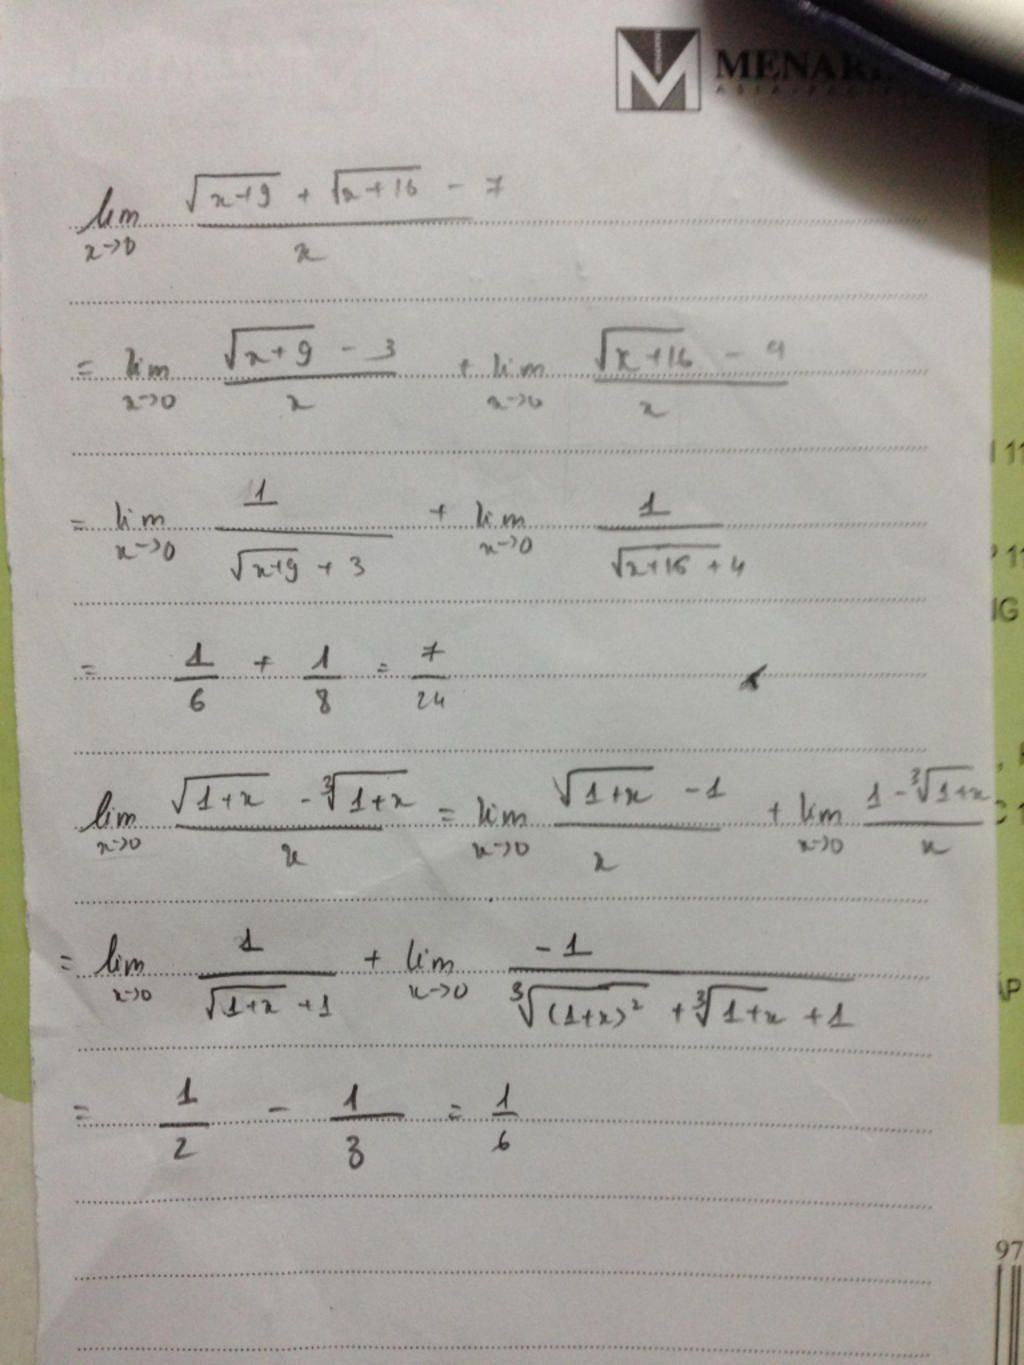 MENAR
ASIA-PACIFI
lim x→0 (√(x+9) + √(x+16) - 7)/x
= lim x→0 (√(x+9) - 3)/x + lim x→0 (√(x+16) - 4)/x
= lim x→0 1/(√(x+9) + 3) + lim x→0 1/(√(x+16) + 4)
= 1/6 + 1/8 = 7/24
lim x→0 (√(1+x) - ∛(1+x))/x = lim x→0 (√(1+x) - 1)/x + lim x→0 (1 - ∛(1+x))/x
= lim x→0 1/(√(1+x) + 1) + lim x→0 -1/(∛((1+x)²) + ∛(1+x) + 1)
= 1/2 - 1/3 = 1/6
97